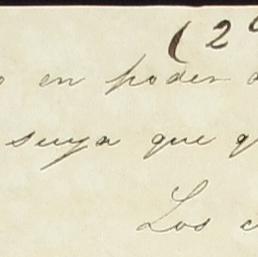 (2
o en poder
suya que q
Los c